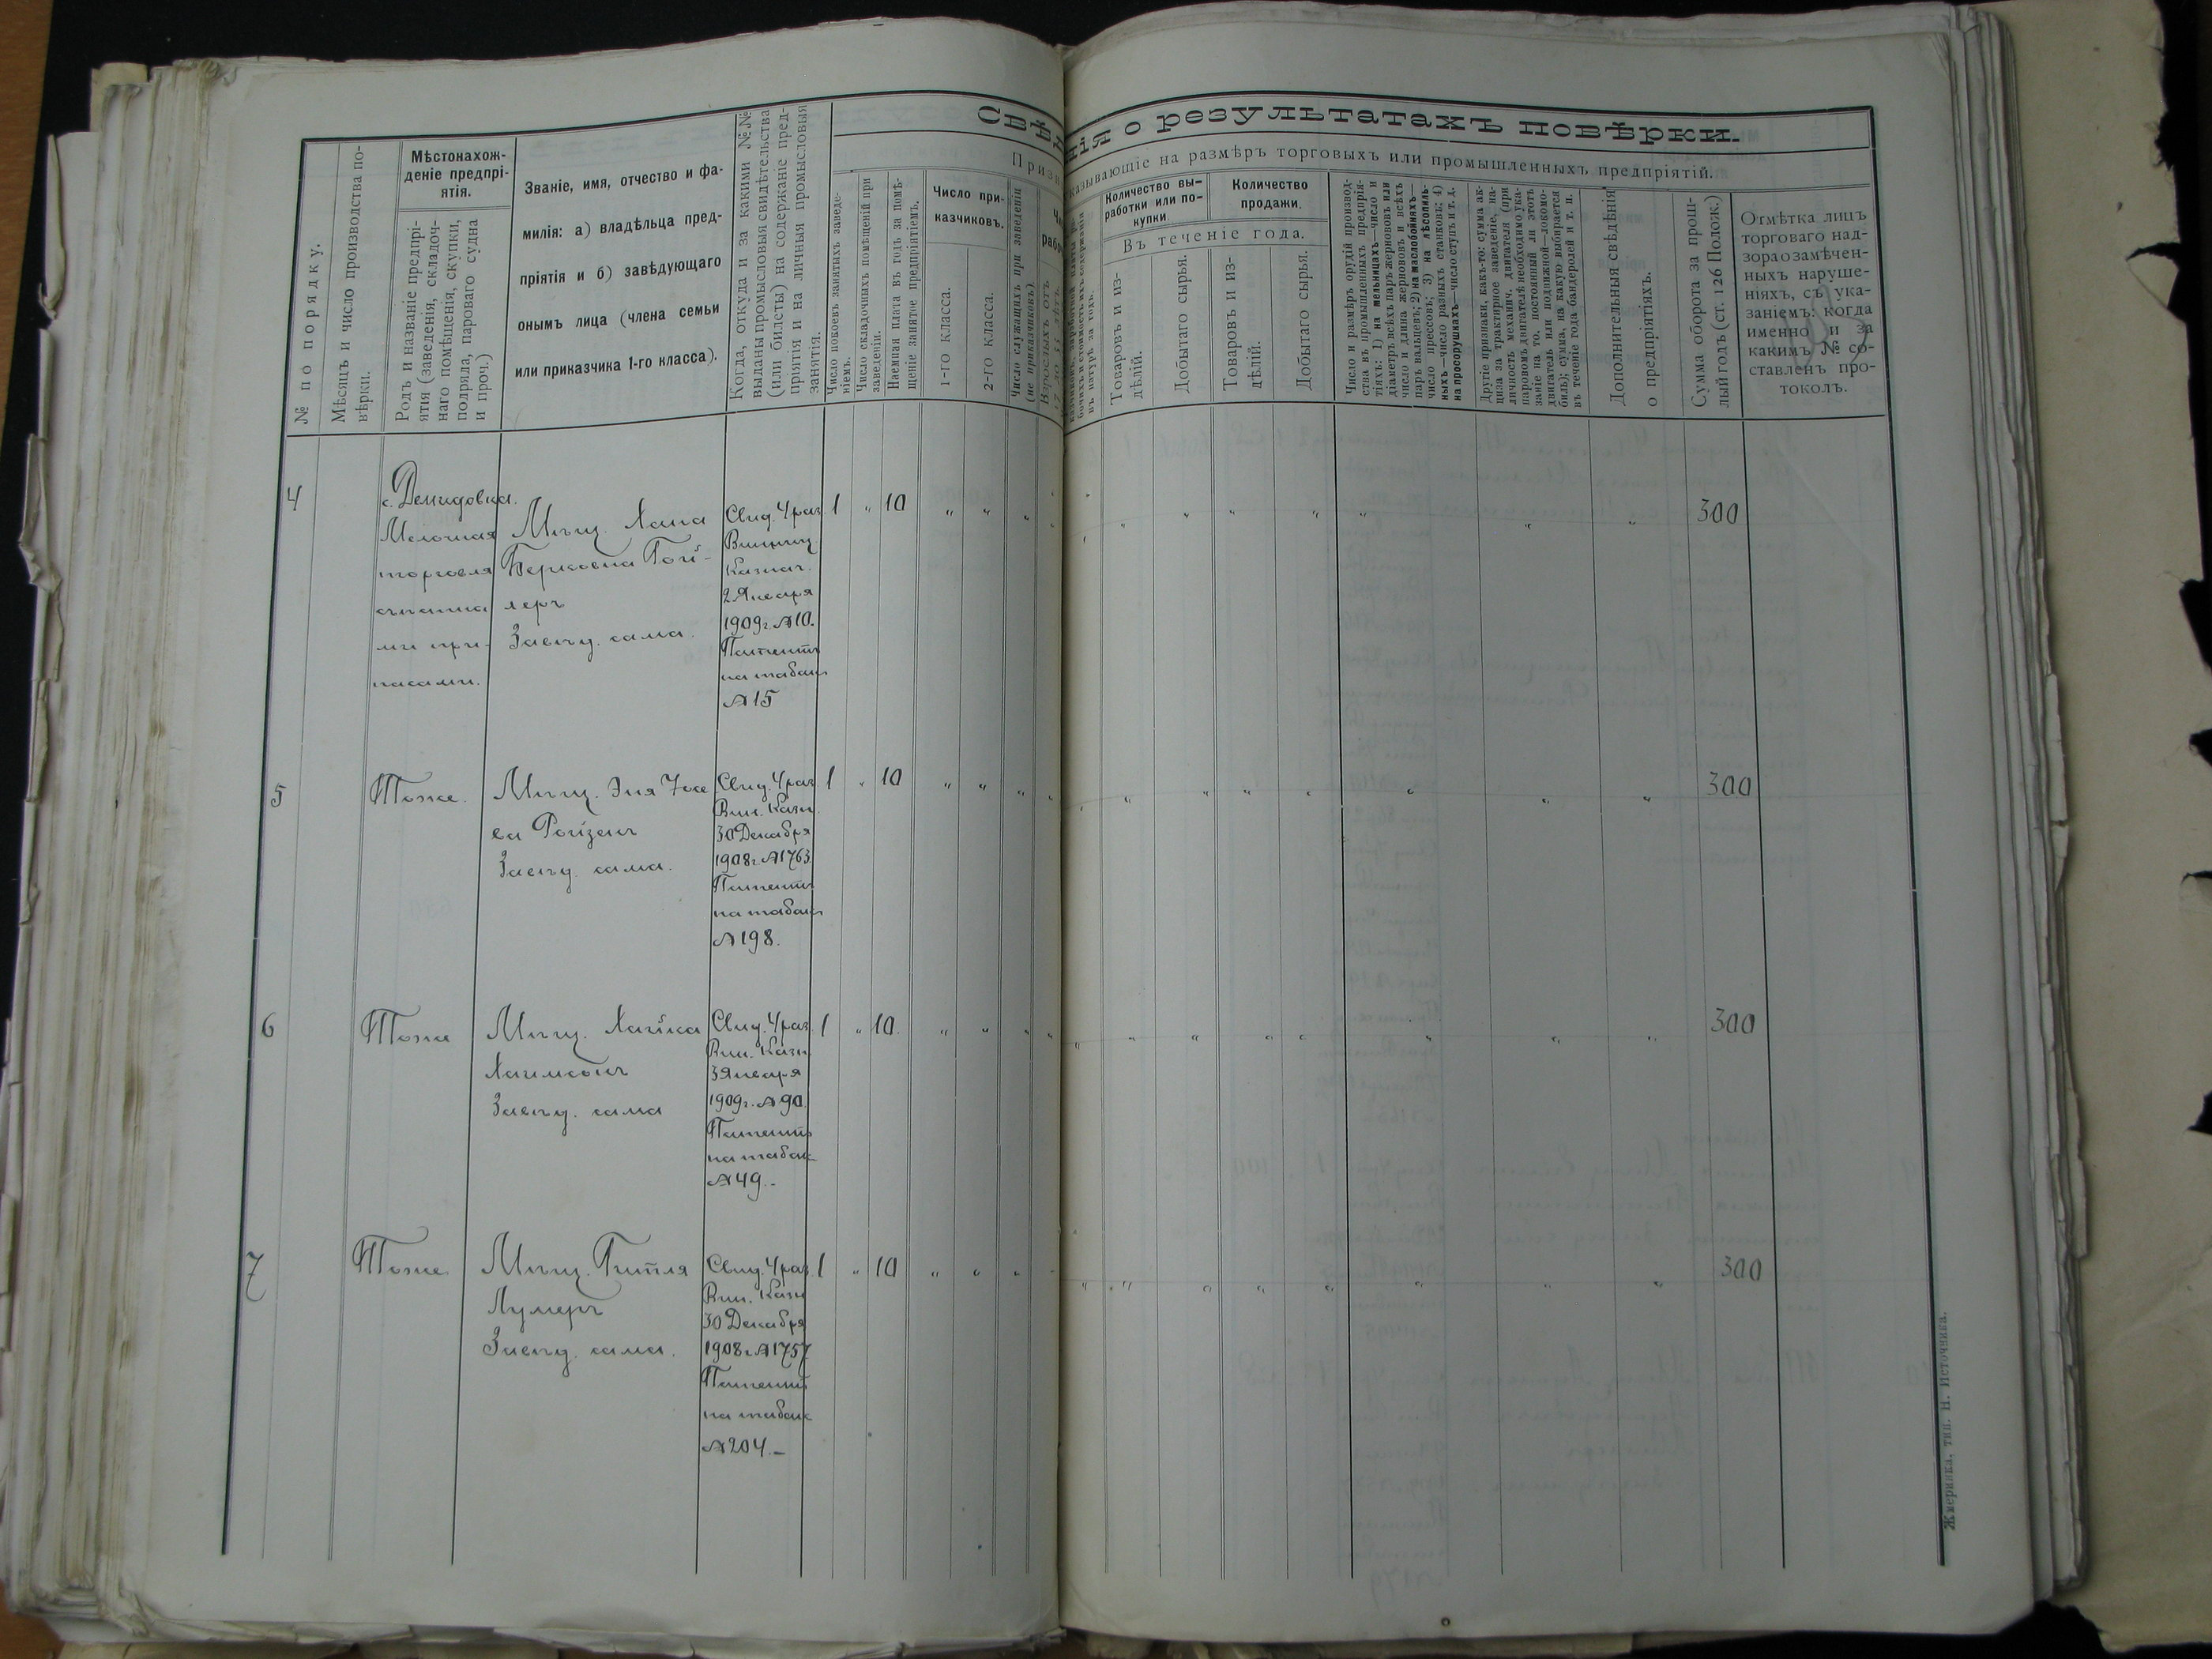 Свѣд
нія о результатахъ повѣрки.
Призн
казывающіе на размѣръ торговыхъ или промышленныхъ предпріятій.
№ по порядку.
Мѣсяцъ и число производства по-
вѣрки.
Мѣстонахож-
деніе предпрі-
ятія.
Родъ и названіе предпрі-
ятія (заведенія, складоч-
наго помѣщенія, скупки,
подряда, парового судна
и проч.)
Званіе, имя, отчество и фа-
милія: а) владѣльца пред-
пріятія и б) завѣдующаго
онымъ лица (члена семьи
или приказчика 1-го класса).
Когда, откуда и за какими №№
выданы промысловыя свидѣтельства
(или билеты) на содержаніе пред-
пріятія и на личныя промысловыя
занятія.
Число покоевъ занятыхъ заведе-
ніемъ.
Число складочныхъ помѣщеній при
заведеніи.
Наемная плата въ годъ за помѣ-
щеніе занятое предпріятіемъ.
Число при-
казчиковъ.
1-го класса.
2-го класса.
Число служащихъ при заведеніи
(не приказчиковъ).
Количество вы-
работки или по-
купки.
Количество
продажи.
Въ теченіе года.
Товаровъ и из-
дѣлій.
Добытаго сырья.
Товаровъ и из-
дѣлій.
Добытаго сырья.
Число и размѣръ орудій производ-
ства въ промышленныхъ предпрія-
тіяхъ: 1) на мельницахъ—число и
діаметръ всѣхъ паръ жернововъ или
число и длина жернововъ и всѣхъ
паръ вальцевъ; 2) на маслобойняхъ—
число прессовъ; 3) на лѣсопиль-
ныхъ—число разныхъ станковъ; 4)
на просорушкахъ—число ступъ и т. д.
Другіе признаки, какъ-то: сумма ак-
циза за трактирное заведеніе, на-
личность механич. двигателя (при
паровомъ двигателѣ необходимо ука-
заніе на то, постоянный ли этотъ
двигатель или подвижной—локомо-
биль); сумма, на какую выбирается
въ теченіе года бандеролей и т. п.
Дополнительныя свѣдѣнія
о предпріятіяхъ.
Сумма оборота за прош-
лый годъ (ст. 126 Полож.)
Отмѣтка лицъ
торговаго над-
зора о замѣчен-
ныхъ наруше-
ніяхъ, съ ука-
заніемъ: когда
именно и за
какимъ № со-
ставленъ про-
токолъ.
4
с. Демидовка.
Мелочная
торговля
съѣстны
ми при-
пасами.
Мѣщ. Хана
Берковна Гой-
леръ
Завѣд. сама.
Свид. 4 раз.
Винниц.
Казнач.
2 Января
1909 г. №10.
Патентъ
на табакъ
№15
1 „ 10 „ „ „ „ „ „ „ „ „ „ „ 300
5
Тоже.
Мѣщ. Эня Іосе
ва Ройзенъ
Завѣд. сама.
Свид. 4 раз
Вин. Казн.
30 Декабря
1908 г. №1763.
Патентъ
на табакъ
№198.
1 „ 10 „ „ „ „ „ „ „ „ „ „ „ 300
6
Тоже
Мѣщ. Хайка
Хаимовичъ
Завѣд. сама
Свид. 4 раз
Вин. Казн.
3 Января
1909 г. №90.
Патентъ
на табак
№49.-
1 „ 10. „ „ „ „ „ „ „ „ „ „ „ 300
7
Тоже.
Мѣщ. Гитля
Лумеръ
Завѣд. сама.
Свид. 4 раз.
Вин. Казн
30 Декабря
1908 г. №1757
Патентъ
на табак
№204.-
1 „ 10 „ „ „ „ „ „ „ „ „ „ „ 300
Жмеринка, тип. Н. Источника.